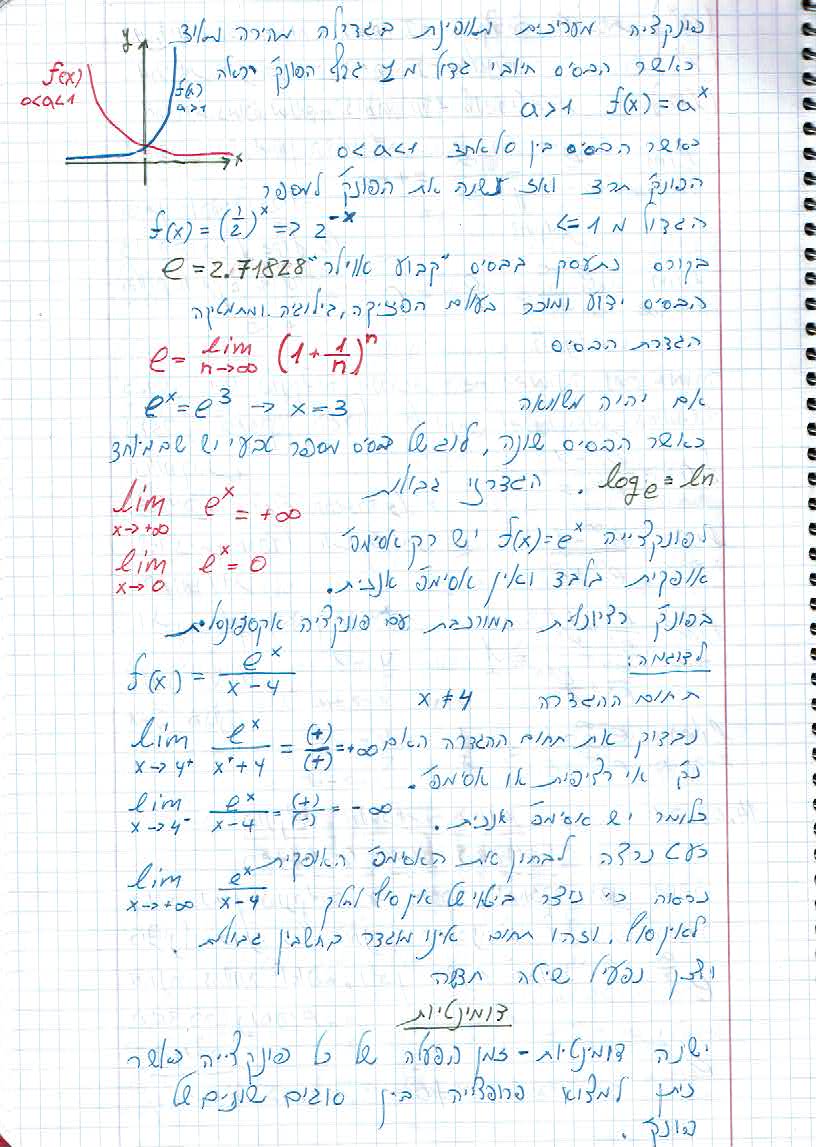 פונקציה מעריכית מאופינת בגדילה מהירה מאוד
כאשר הבסיס חיובי גדול מ 1 גרף הפונק' יראה
y
f(x)
0<a<1
f(x)
a>1
x
a>1 f(x) = aˣ
כאשר הבסיס בין 0<a<1
הפונק' תרד ואז נעשנה את הפונק' למספר
הגדול מ 1 <=
f(x) = (1/2)ˣ => 2⁻ˣ
בקורס נתעסק בבסיס "קבוע אוילר" e = 2.71828
הבסיס ידוע ומוכר בעולם הפיזיקה, בילוגיה ומתמטקה
הגדרת הבסיס
e = lim n→∞ (1 + 1/n)ⁿ
אם יהיה משוואה
eˣ = e³ → x = 3
כאשר הבסיס שונה, לוג של בסיס מספר טבעי יש שם מיוחד
logₑ = ln . הגדרני גבולות
lim x→+∞ eˣ = +∞
לפונקצייה f(x)=eˣ יש רק אסימפ'
lim x→0 eˣ = 0
אופקית בלבד ואין אסימפ' אנכית.
בפונק' רציונלית המורכבת עם פונקציה אקספוננסלית
לדוגמה:
f(x) = eˣ/(x-4)
תחום ההגדרה x ≠ 4
נבדוק את תחום ההגדרה האם
lim x→4⁺ eˣ/(x⁺+4) = (+)/(+) = +∞
נק' אי רציפות או אסימפ'.
lim x→4⁻ eˣ/(x-4) = (+)/(-) = -∞
כלומר יש אסימפ' אנכית.
כעט נרצה לבחון את האסימפ' האופקית
lim x→+∞ eˣ/(x-4)
נרסוה כי נוצר ביטוי של אין סוף חלקי
לאין סוף, וזהו תחום אינו מוגדר בחשבון גבולות.
ולכן נפעיל שיטה חדשה
דומינטיות
ישנה דומינטיות - זמן הפעלה של כל פונקצייה כאשר
ניתן למצוא פרופצייה בין סוגים שונים של
פונק'.